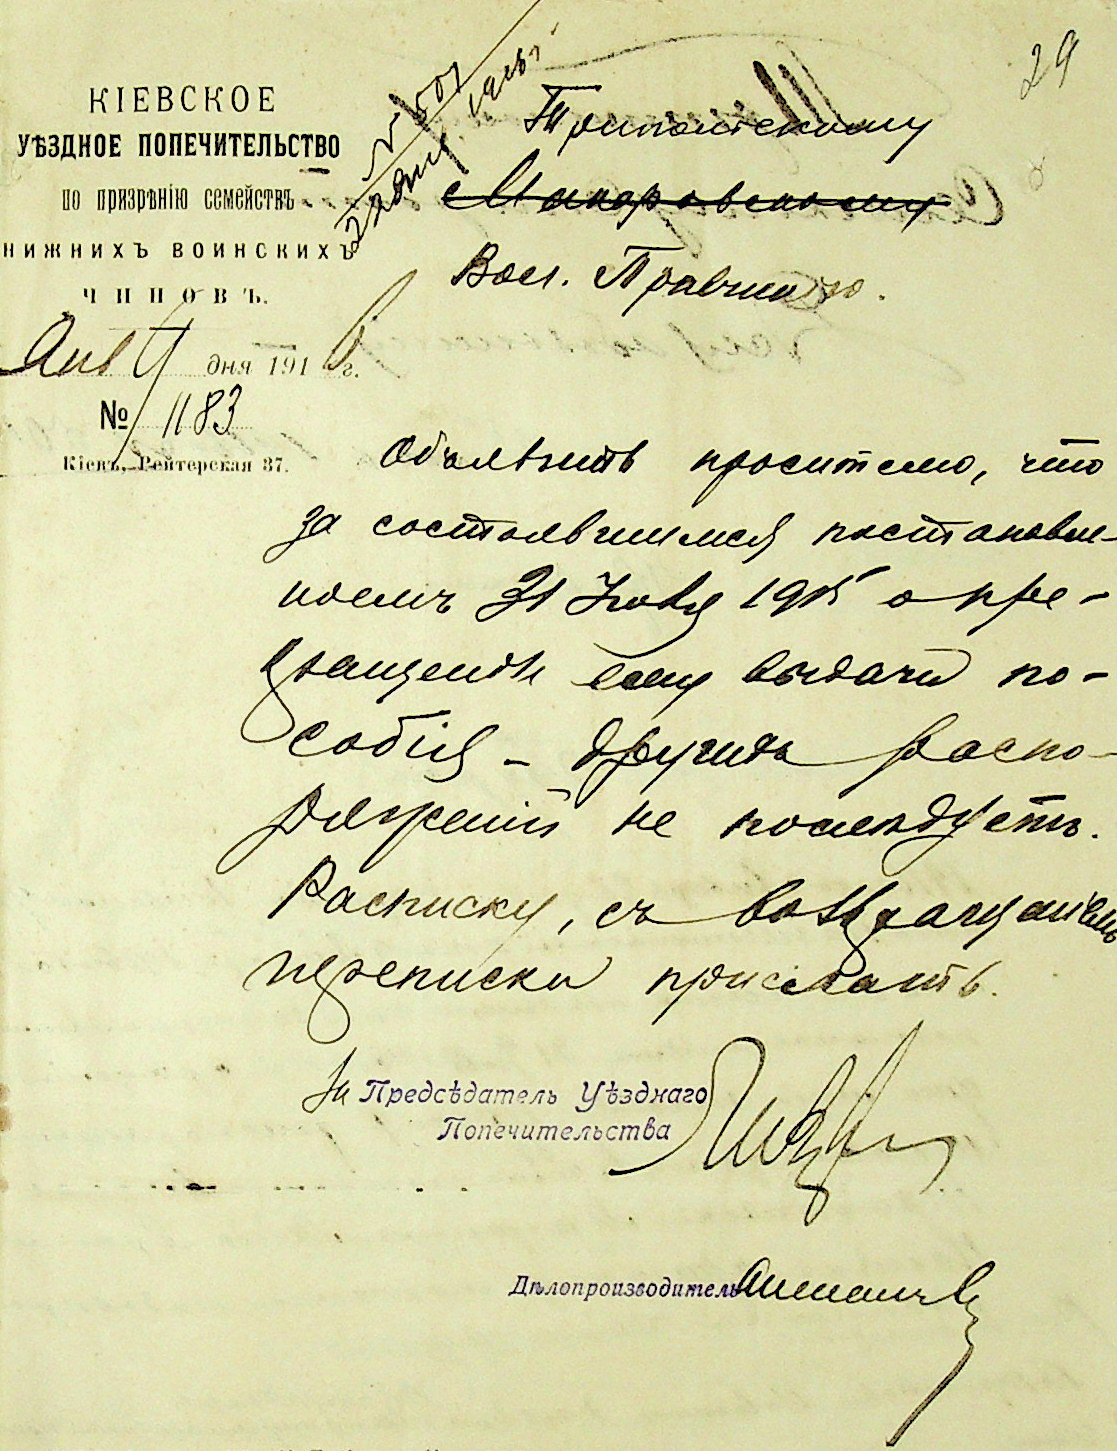 29
КІЕВСКОЕ
УѢЗДНОЕ ПОПЕЧИТЕЛЬСТВО
по призрѣнію семействъ
НИЖНИХЪ ВОИНСКИХЪ
ЧИНОВЪ.
Янв 9 дня 1916 г.
№ 1183
Кіевъ, Рейтерская 37.
№ 501
22 янв. 1916 г.
Трипольскому
Макаровскому
Вол. Правленію.
Объявить просителю, что
за состоявшимся постановле-
ніемъ 31 Ноября 1915 о пре-
кращеніи ему выдачи по-
собія - другихъ распо-
ряженій не послѣдуетъ.
Расписку, съ возвращеніемъ
переписки прислать.
За Предсѣдатель Уѣзднаго
Попечительства
Дѣлопроизводитель